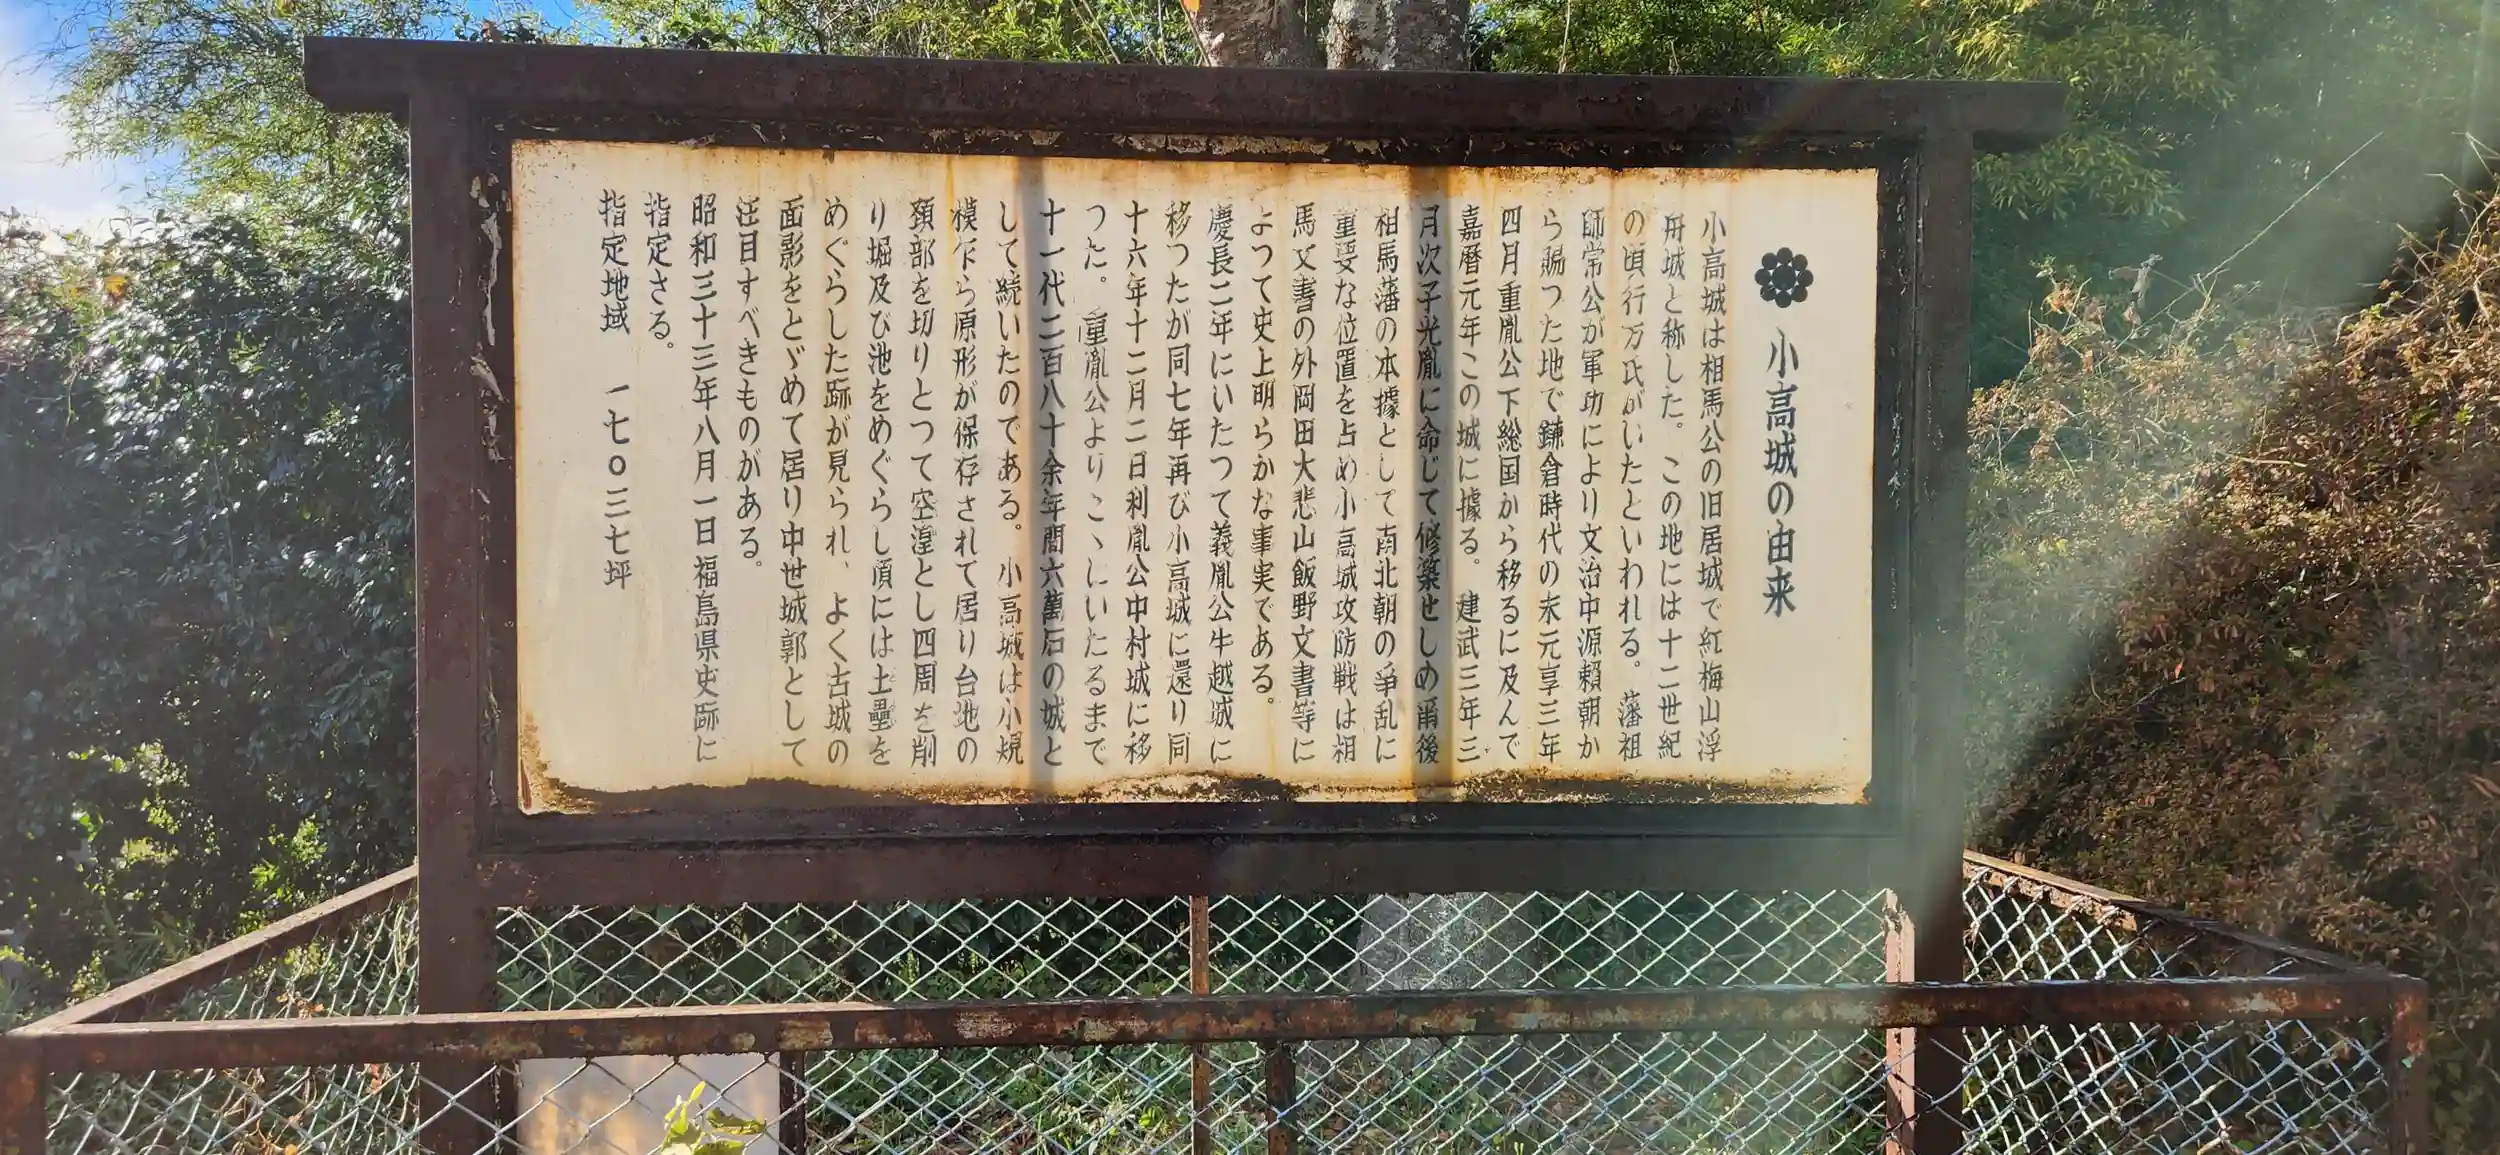 小高城の由来
小高城は相馬公の旧居城で紅梅山浮
舟城と称した。この地には十二世紀
の頃行方氏がいたといわれる。藩祖
師常公が軍功により文治中源頼朝か
ら賜つた地で鎌倉時代の末元享三年
四月重胤公下総国から移るに及んで
嘉暦元年この城に據る。建武三年三
月次子光胤に命じて修築せしめ爾後
相馬藩の本據として南北朝の爭乱に
重要な位置を占め小高城攻防戦は相
馬文書の外岡田大悲山飯野文書等に
よつて史上明らかな事実である。
慶長二年にいたつて義胤公牛越城に
移つたが同七年再び小高城に還り同
十六年十二月二日利胤公中村城に移
つた。重胤公よりこゝにいたるまで
十一代二百八十余年間六萬石の城と
して続いたのである。小高城は小規
模乍ら原形が保存されて居り台地の
頚部を切りとつて空湟とし四周を削
り堀及び池をめぐらし頂には土壘を
めぐらした跡が見られ、よく古城の
面影をとゞめて居り中世城郭として
注目すべきものがある。
昭和三十三年八月一日福島県史跡に
指定さる。
指定地域 一七〇三七坪